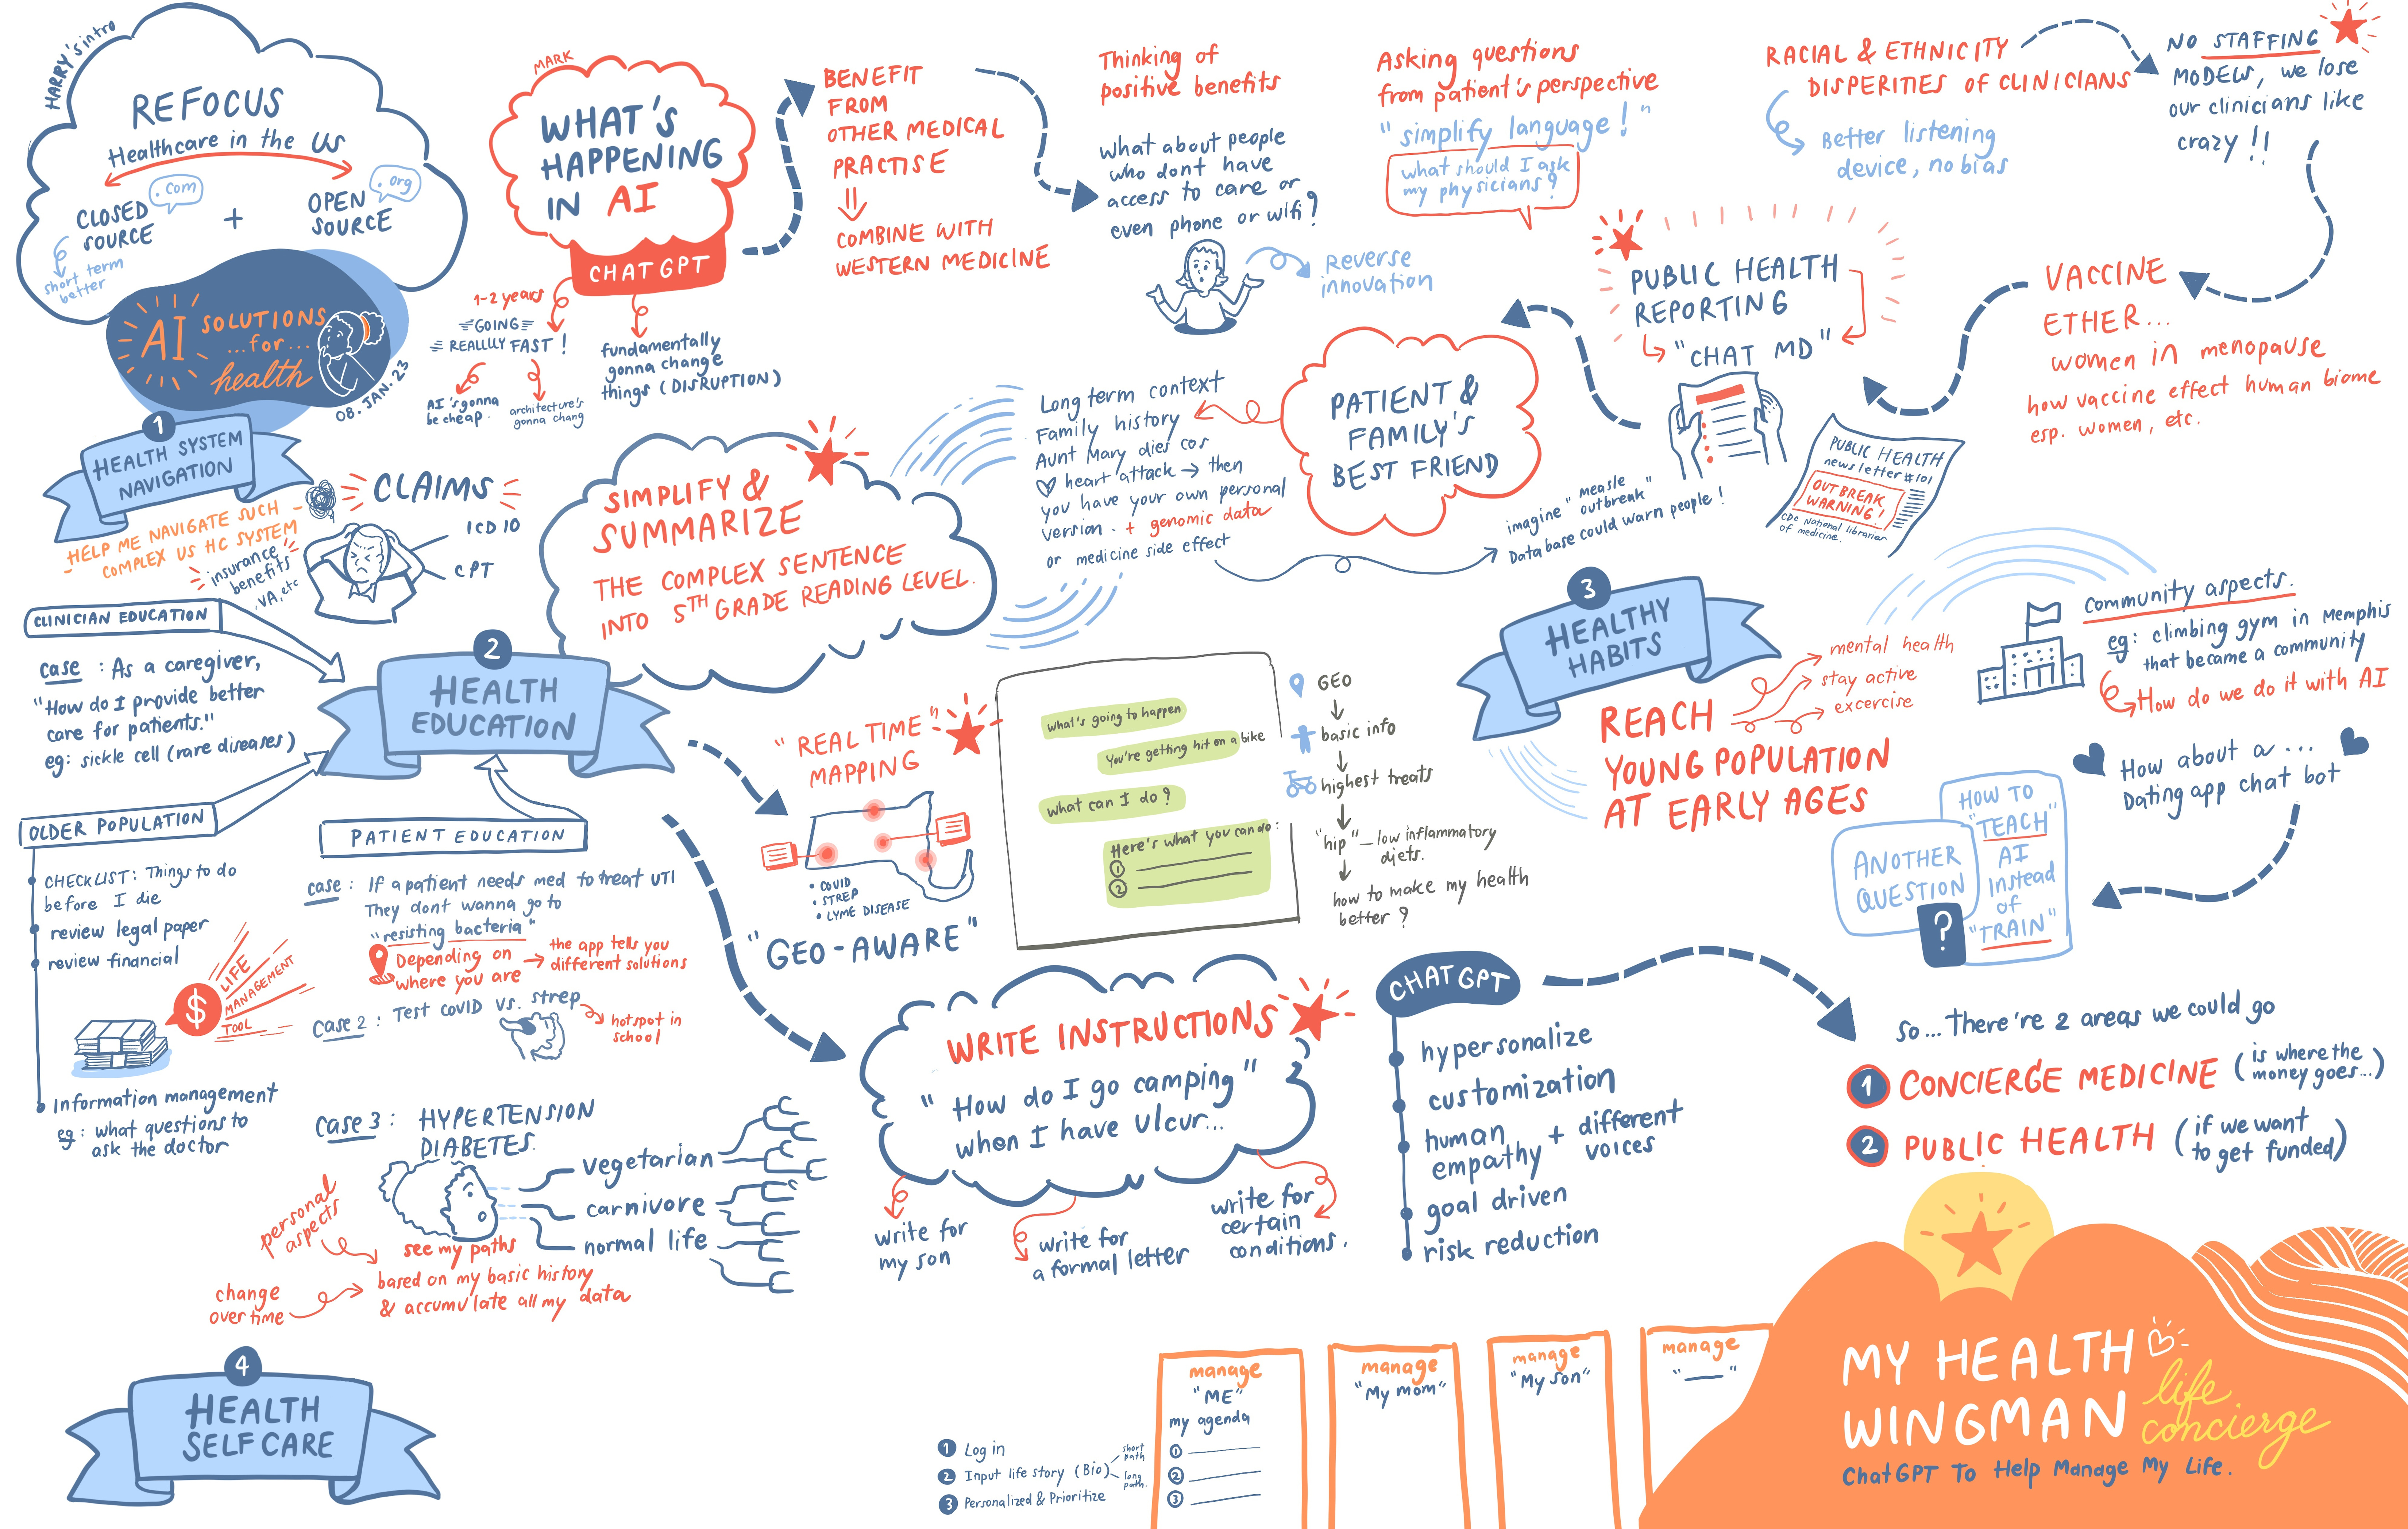 HARRY's intro
REFOCUS
Healthcare in the US
.com
.org
CLOSED
SOURCE
+
OPEN
SOURCE
short term
better
AI SOLUTIONS
...for...
health
08. JAN. 23
MARK
WHAT'S
HAPPENING
IN AI
CHATGPT
1-2 years
GOING
REALLLLY FAST!
AI's gonna
be cheap.
architecture's
gonna chang
fundamentally
gonna change
things (DISRUPTION)
BENEFIT
FROM
OTHER MEDICAL
PRACTISE
COMBINE WITH
WESTERN MEDICINE
Thinking of
positive benefits
What about people
who dont have
access to care or
even phone or wifi?
Reverse
innovation
Asking questions
from patient's perspective
"simplify language!"
what should I ask
my physicians?
RACIAL & ETHNICITY
DISPERITIES OF CLINICIANS
Better listening
device, no bias
NO STAFFING
MODELS, we lose
our clinicians like
crazy!!
VACCINE
ETHER...
women in menopause
how vaccine effect human biome
esp. women, etc.
PUBLIC HEALTH
REPORTING
"CHAT MD"
PUBLIC HEALTH
newsletter #101
OUTBREAK
WARNING!
CDC National libraries
of medicine.
imagine "measle
outbreak"
Database could warn people!
PATIENT &
FAMILY'S
BEST FRIEND
Long term context
Family history
Aunt Mary dies cos
heart attack → then
you have your own personal
version - + genomic data
or medicine side effect
1
HEALTH SYSTEM
NAVIGATION
HELP ME NAVIGATE SUCH
COMPLEX US HC SYSTEM
CLAIMS
ICD 10
CPT
insurance
benefits
, VA, etc
SIMPLIFY &
SUMMARIZE
THE COMPLEX SENTENCE
INTO 5TH GRADE READING LEVEL.
2
HEALTH
EDUCATION
CLINICIAN EDUCATION
case : As a caregiver,
"How do I provide better
care for patients."
eg: sickle cell (rare diseases)
OLDER POPULATION
CHECKLIST: Things to do
before I die
review legal paper
review financial
$
LIFE
MANAGEMENT
TOOL
Information management
eg: what questions to
ask the doctor
PATIENT EDUCATION
case : If a patient needs med to treat UTI
They dont wanna go to
"resisting bacteria"
Depending on
where you are
→ the app tells you
different solutions
case 2 : Test covid vs. strep
hotspot in
school
case 3 : HYPERTENSION
DIABETES.
vegetarian
carnivore
normal life
personal
aspects
change
over time
see my paths
based on my basic history
& accumulate all my data
"REAL TIME"
MAPPING
• COVID
• STREP
• LYME DISEASE
"GEO-AWARE"
what's going to happen
You're getting hit on a bike
what can I do?
Here's what you can do:
1
2
GEO
basic info
highest treats
"hip" — low inflammatory
diets.
how to make my health
better?
WRITE INSTRUCTIONS
"How do I go camping"
when I have Ulcur...
write for
my son
write for
a formal letter
write for
certain
conditions.
CHATGPT
hypersonalize
customization
human
empathy + different
voices
goal driven
risk reduction
3
HEALTHY
HABITS
REACH
YOUNG POPULATION
AT EARLY AGES
mental health
stay active
excercise
Community aspects.
eg: climbing gym in Memphis
that became a community
How do we do it with AI
How about a...
Dating app chat bot
ANOTHER
QUESTION
?
HOW TO
"TEACH"
AI
instead
of
"TRAIN"
So... There're 2 areas we could go
1 CONCIERGE MEDICINE (is where the
money goes...)
2 PUBLIC HEALTH (if we want
to get funded)
4
HEALTH
SELF CARE
1 Log in
2 Input life story (Bio)
short
path
long
path.
3 Personalized & Prioritize
manage
"ME"
my agenda
1
2
3
manage
"My mom"
manage
"My son"
manage
"__"
MY HEALTH
WINGMAN
life
concierge
ChatGPT To Help Manage My Life.